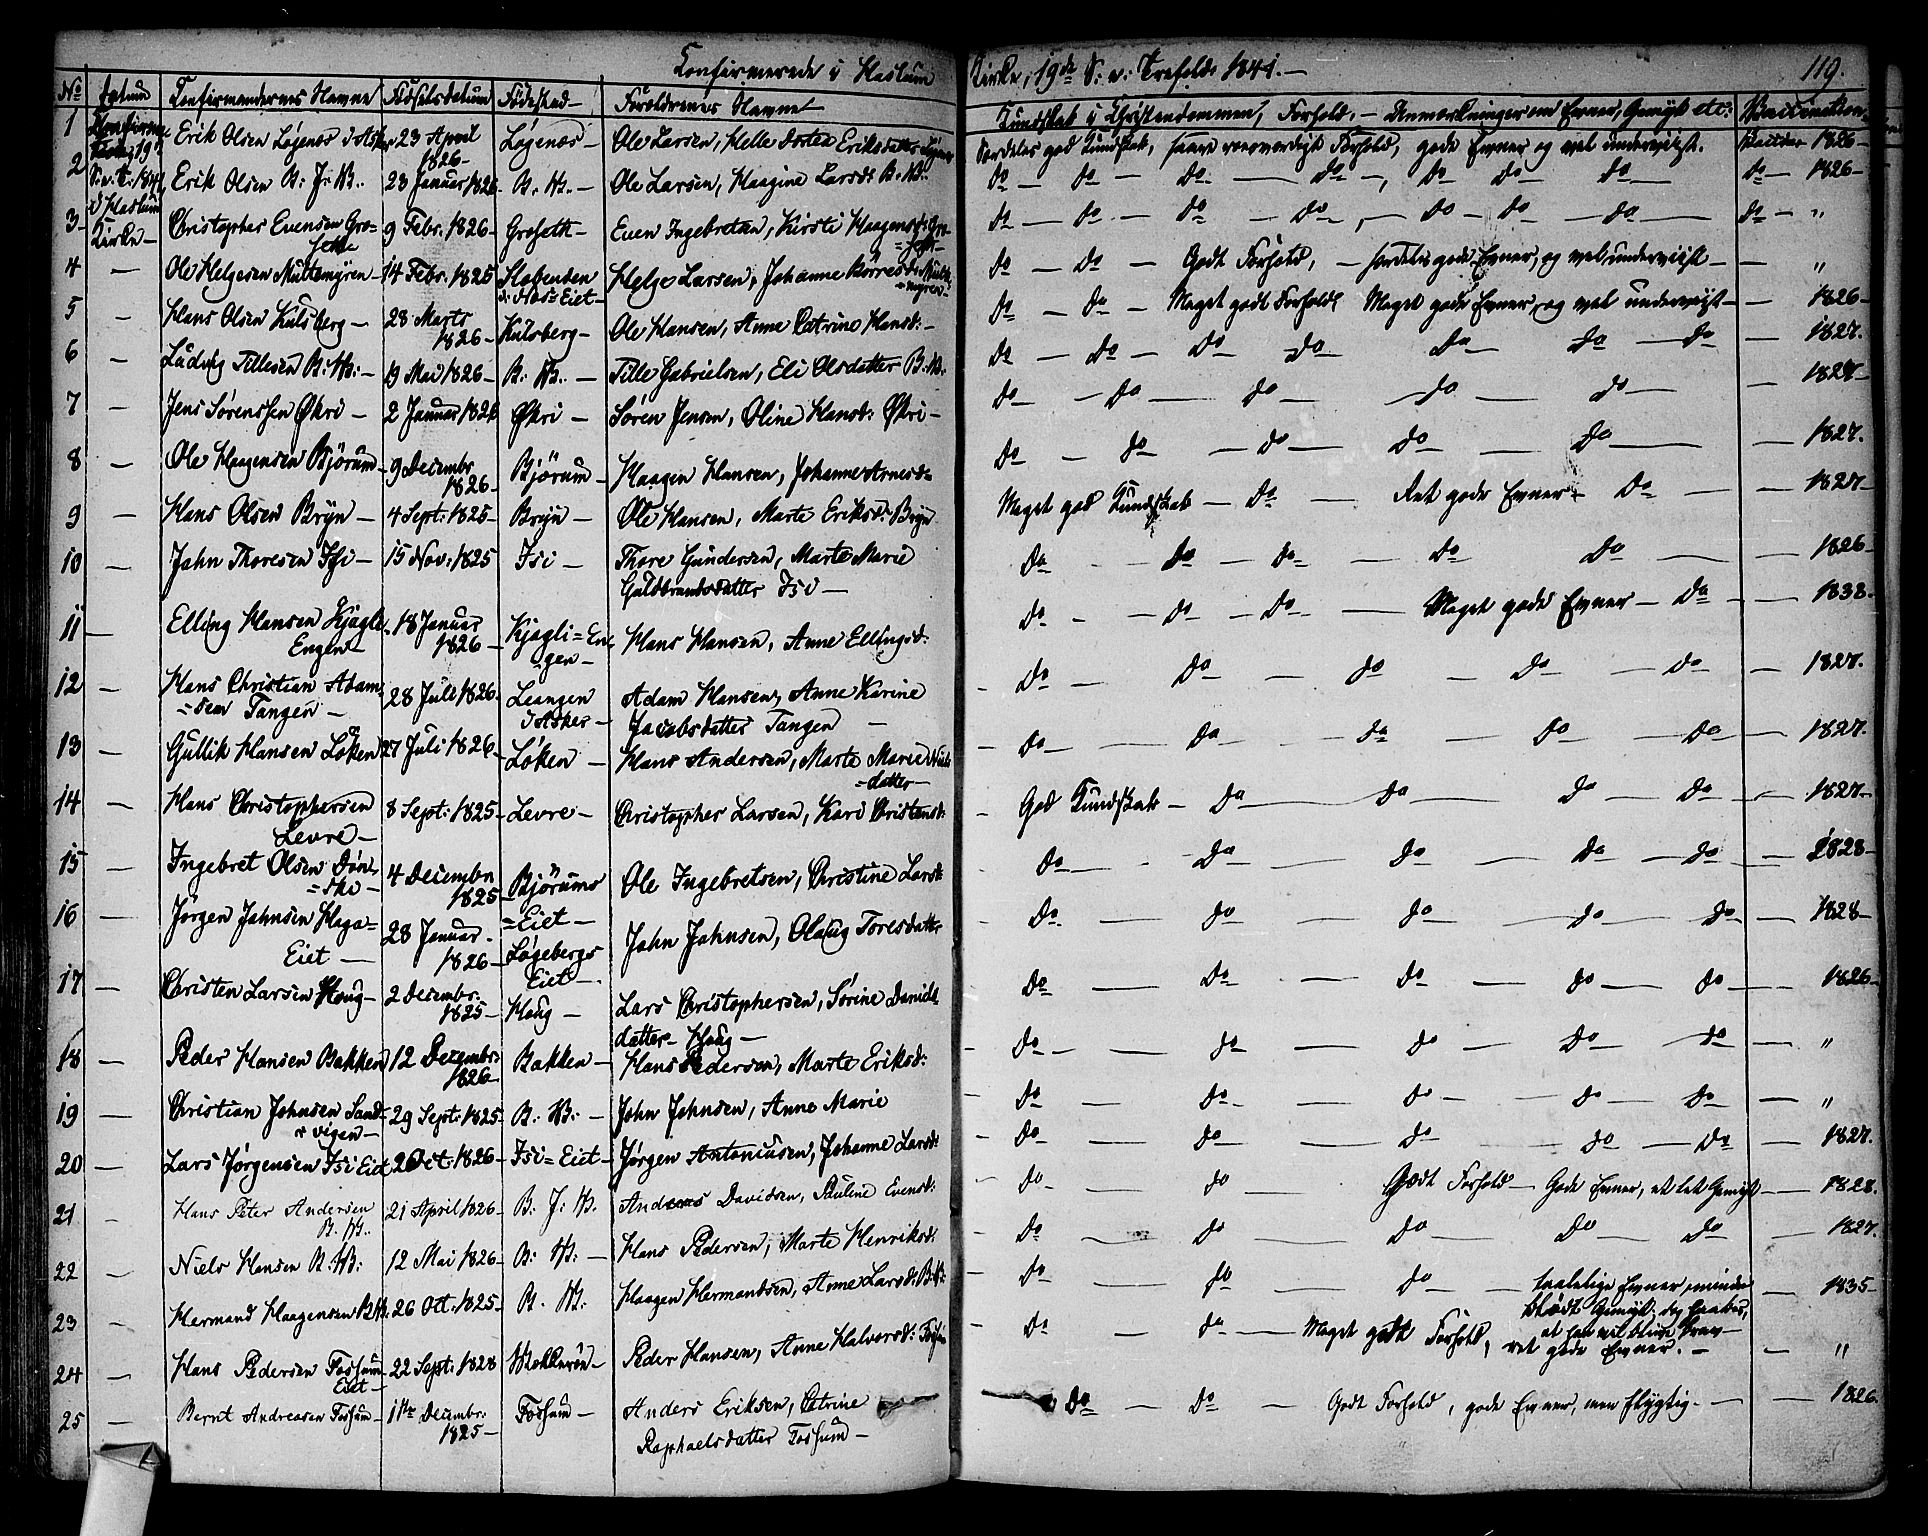 Confirmerede i Haslum Kirke, 19de S: e: Trefold: 1841. —
119.
No Datum Confirmandernes Navne Fødselsdatum Fødested — Forældrenes Navne
Kundskab i Christendommen, Forhold. — Anmærkninger om Evner, Gemyt etc: Vaccination
1 Erik Olsen Løgenæs i Asker 23 April 1826 — Løgenæs — Ole Larsen, Helle Dortea Eriksdatter
Særdeles god Kundskab, særdeles Forhold, gode Evner og vel underviist. 1826 —
S: e: T: 1841 i Haslum Kirke —
2 Erik Olsen B: J: B: 23 Januar 1826 B: B: — Ole Larsen, Maagine Larsd: B: B:
do — do — do — do —, do — do — do — do — 1826 —
3 Christopher Evensen Gro=seth 9 Febr: 1826 — Groseth — Even Ingebretsen, Kirsti Haagensd: Gro=seth —
do — do — do — do —, — do — do — do — do — "
4 — Ole Helgesen Multemyren — 14 Febr: 1825 Slabenden Næs=Eiet — Helge Larsen, Johanne Børresd: Multe=myren —
do — do — Godt Forhold, — særdeles gode Evner, og vel underviist — — "
5 — Hans Olsen Kulsberg — 28 Marts 1826 — Kulsberg — Ole Hansen, Anne Catrine Hansd: —
do — do — Meget godt Forhold, Meget gode Evner, og vel underviist — — 1826 —
6 — Ludvig Tillesen B: B: — 19 Mai 1826 — B: B: — Tille Gabrielsen, Eli Olsdatter B: B:
do — do — do — do — do — do — do — 1827.
7 — Jens Sørenssen Øvri — 2 Januar 1826 Øvri — Søren Jensen, Oline Hansd: Øvri —
do — do — do — do — do — — 1827 —
8 — Ole Haagensen Bjørum — 9 Decembr 1826 — Bjørum — Haagen Hansen, Johanne Arnesd: —
do — do — do — do — do — — 1827.
9 — Hans Olsen Bryn — 4 Sept: 1825 — Bryn — Ole Hansen, Marte Eriksd: Bryn
Meget god Kundskab — do — Ret gode Evner — do — — 1827 —
10 — Jahn Thoresen Isi — 15 Nov: 1825 Isi — Thore Gundersen, Marte Marie Guldbrandsdatter Isi —
do — do — do — do — do — — 1826 —
11 — Elling Hansen Kjagli Engen — 18 Januar 1826 — Kjagli=Engen — Hans Hansen, Anne Ellingsd:
do — do — do — Meget gode Evner — do — — 1838.
12 — Hans Christian Adam=sen Tangen — 28 Juli 1826. Leangen i Asker — Adam Hansen, Anne Karine Jacobsdatter Tangen —
do — do — do — do — do — — 1827.
13 — Gullik Hansen Løken 27 Juli 1826 — Løken — Hans Andersen, Marte Marie Niels=datter —
do — do — do — do — do — — 1827.
14 — Hans Christophersen Levre — 8 Sept: 1825 — Levre — Christopher Larsen, Kari Christensd:
God Kundskab — do — do — do — do — — 1827 —
15 — Ingebret Olsen Døn=ski — 4 Decembr 1825 Bjørums=Eiet — Ole Ingebretsen, Christine Larsd:
do — do — do — do — do — — 1828 —
16 — Jørgen Jahnsen Haga=Eiet — 28 Januar 1826 — Løgebergs Eiet — Jahn Jahnsen, Olaug Toresdatter
do — do — do — do — do — — 1828 —
17 — Christen Larsen Haug — 2 Decembr: 1825 — Haug — Lars Christophersen, Sørine Daniels datter — Haug —
do — do — do — do — do — — 1826 —
18 — Peder Hansen Bakken 12 Decembr: 1826 — Bakken — Hans Pedersen, Marte Eriksd:
do — do — do — do — do — — "
19 — Christian Johnsen Sand=vigen — 29 Sept: 1825 B: B: — John Johnsen, Anne Marie
do — do — do — do — do — — "
20 — Lars Jørgensen Isi Eiet 2 Oct: 1826 — Isi=Eiet — Jørgen Antoniusen, Johanne Larsd:
do — do — do — do — do — — 1827.
21 — Hans Peter Andersen B. B.. 21 April 1826 — B. J. B. Andreas Davidsen, Pauline Evensd:
do — do — Godt Forhold — Gode Evner, et let Gemyt — — 1828.
22 — Niels Hansen B: B: 12 Mai 1826 — B: B: — Hans Pedersen, Marte Henriksd:
do — do — do — do — do — 1827.
23 — Hermand Haagensen B.B. 26 Oct: 1825 — B. B: Haagen Hermandsen, Anne Larsd: B: B:
do — do — do — taalelige Evner, mindre blødt Gemyt; dog haabes, at han vil blive brav — — 1835 —
24 — Hans Pedersen Fossum Eiet — 22 Sept: 1828 — Peder Hansen, Anne Halvorsd: Fossum
do — do — Meget godt Forhold, ret gode Evner. — — "
25 — Bernt Andreasen Fossum — 11te Decembr: 1825 — Fossum — Anders Eriksen, Catrine Raphaelsdatter Fossum —
do — do — Godt Forhold, gode Evner, men flygtig — — 1826.